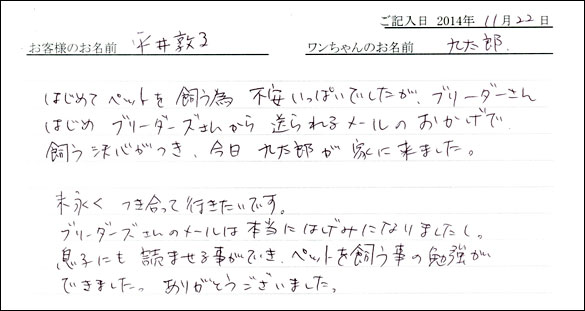 ご記入日 2014年 11月 22日
お客様のお名前 平井敦る ワンちゃんのお名前 九太郎.
はじめて ペットを 飼う為 不安いっぱいでしたが、ブリーダーさん
はじめ ブリーダーズさんから 送られるメールの おかげで
飼う決心がつき、今日 九太郎が 家に来ました。
末永く つき合って行きたいです。
ブリーダーズさんのメールは本当にはげみになりましたし。
息子にも 読ませる事ができ、ペットを飼う事の勉強が
できました。ありがとうございました。